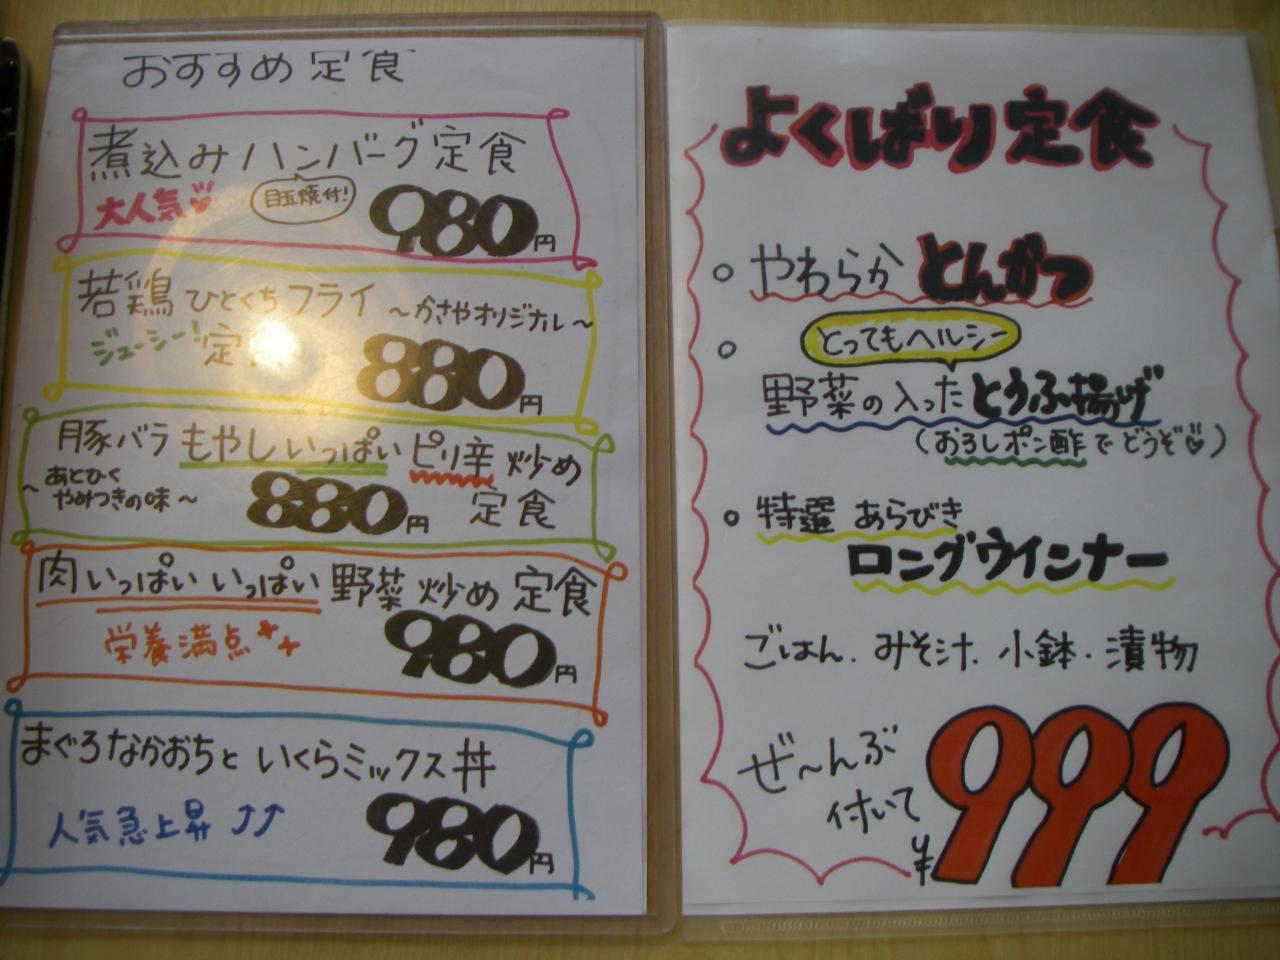 おすすめ定食
煮込みハンバーグ定食
大人気
目玉焼付!
980円
若鶏ひとくちフライ ～かさやオリジナル～
ジューシー! 定食
880円
豚バラ もやしいっぱい ピリ辛 炒め
～あとひく
やみつきの味～
880円 定食
肉いっぱいいっぱい 野菜炒め定食
栄養満点
980円
まぐろなかおちといくらミックス丼
人気急上昇
980円
よくばり定食
やわらか とんかつ
とってもヘルシー
野菜の入ったとうふ揚げ
(おろしポン酢でどうぞ)
特選 あらびき
ロングウインナー
ごはん．みそ汁．小鉢．漬物
ぜ～んぶ
付いて
¥999